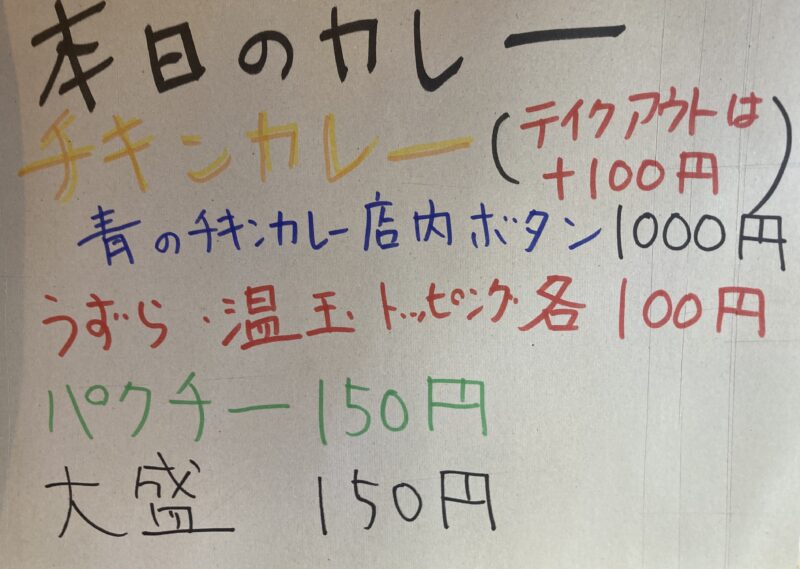 本日のカレー
チキンカレー(テイクアウトは
+100円)
青のチキンカレー店内ボタン1000円
うずら・温玉トッピング各100円
パクチー150円
大盛 150円